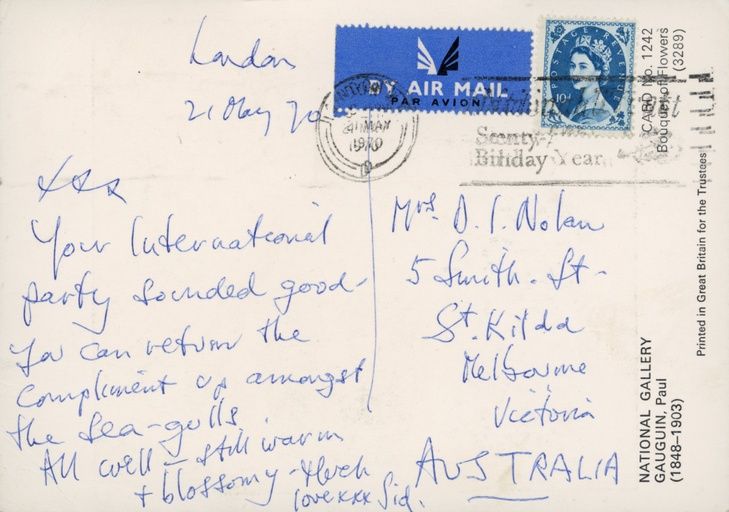 London
21 May 70
xxx
Your International
party sounded good -
You can return the
compliment up amongst
the sea-gulls
All well - still warm
+ blossomy - Much
love xxx Sid.
BY AIR MAIL
PAR AVION
POSTAGE REVENUE
10D
21 MAY
1970
Seventy-
Bithday Year
Mrs. D. I. Nolan
5 Smith. St -
St. Kilda
Melbourne
Victoria
AUSTRALIA
CARD No. 1242
Bouquet of Flowers
(3289)
Printed in Great Britain for the Trustees
NATIONAL GALLERY
GAUGUIN, Paul
(1848–1903)